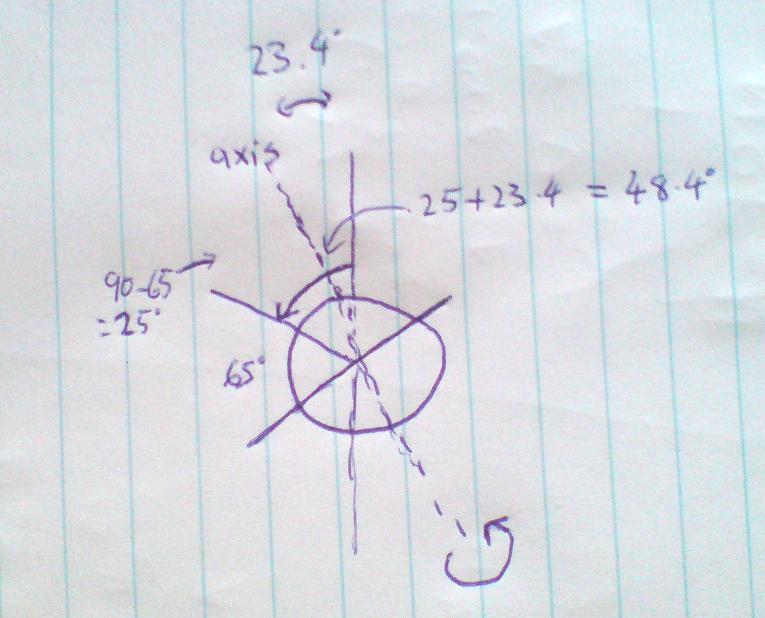 23.4°
axis
25+23.4 = 48.4°
90-65
=25°
65°